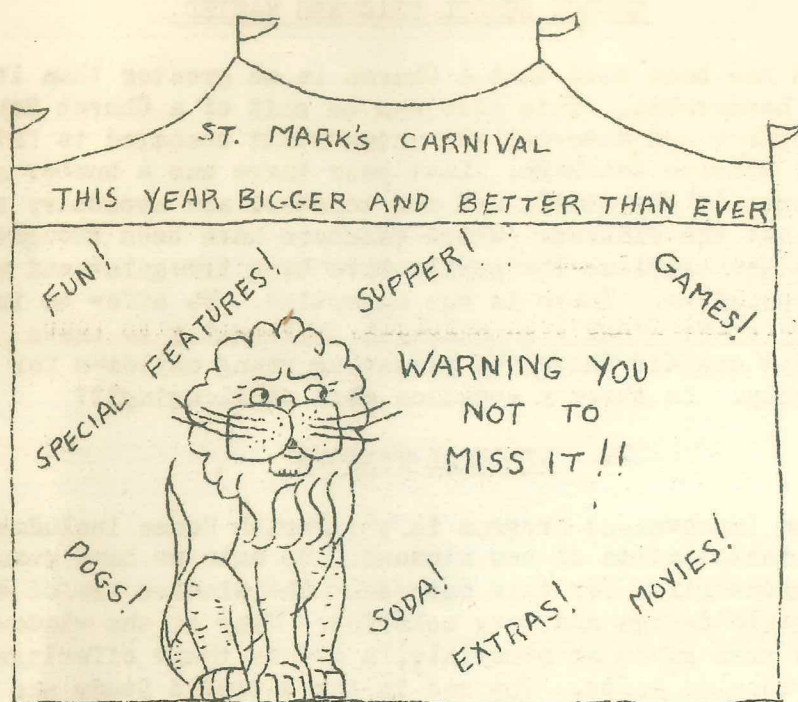 ST. MARK'S CARNIVAL
THIS YEAR BIGGER AND BETTER THAN EVER
FUN!
SPECIAL FEATURES!
SUPPER!
GAMES!
WARNING YOU
NOT TO
MISS IT!!
DOGS!
SODA!
EXTRAS!
MOVIES!